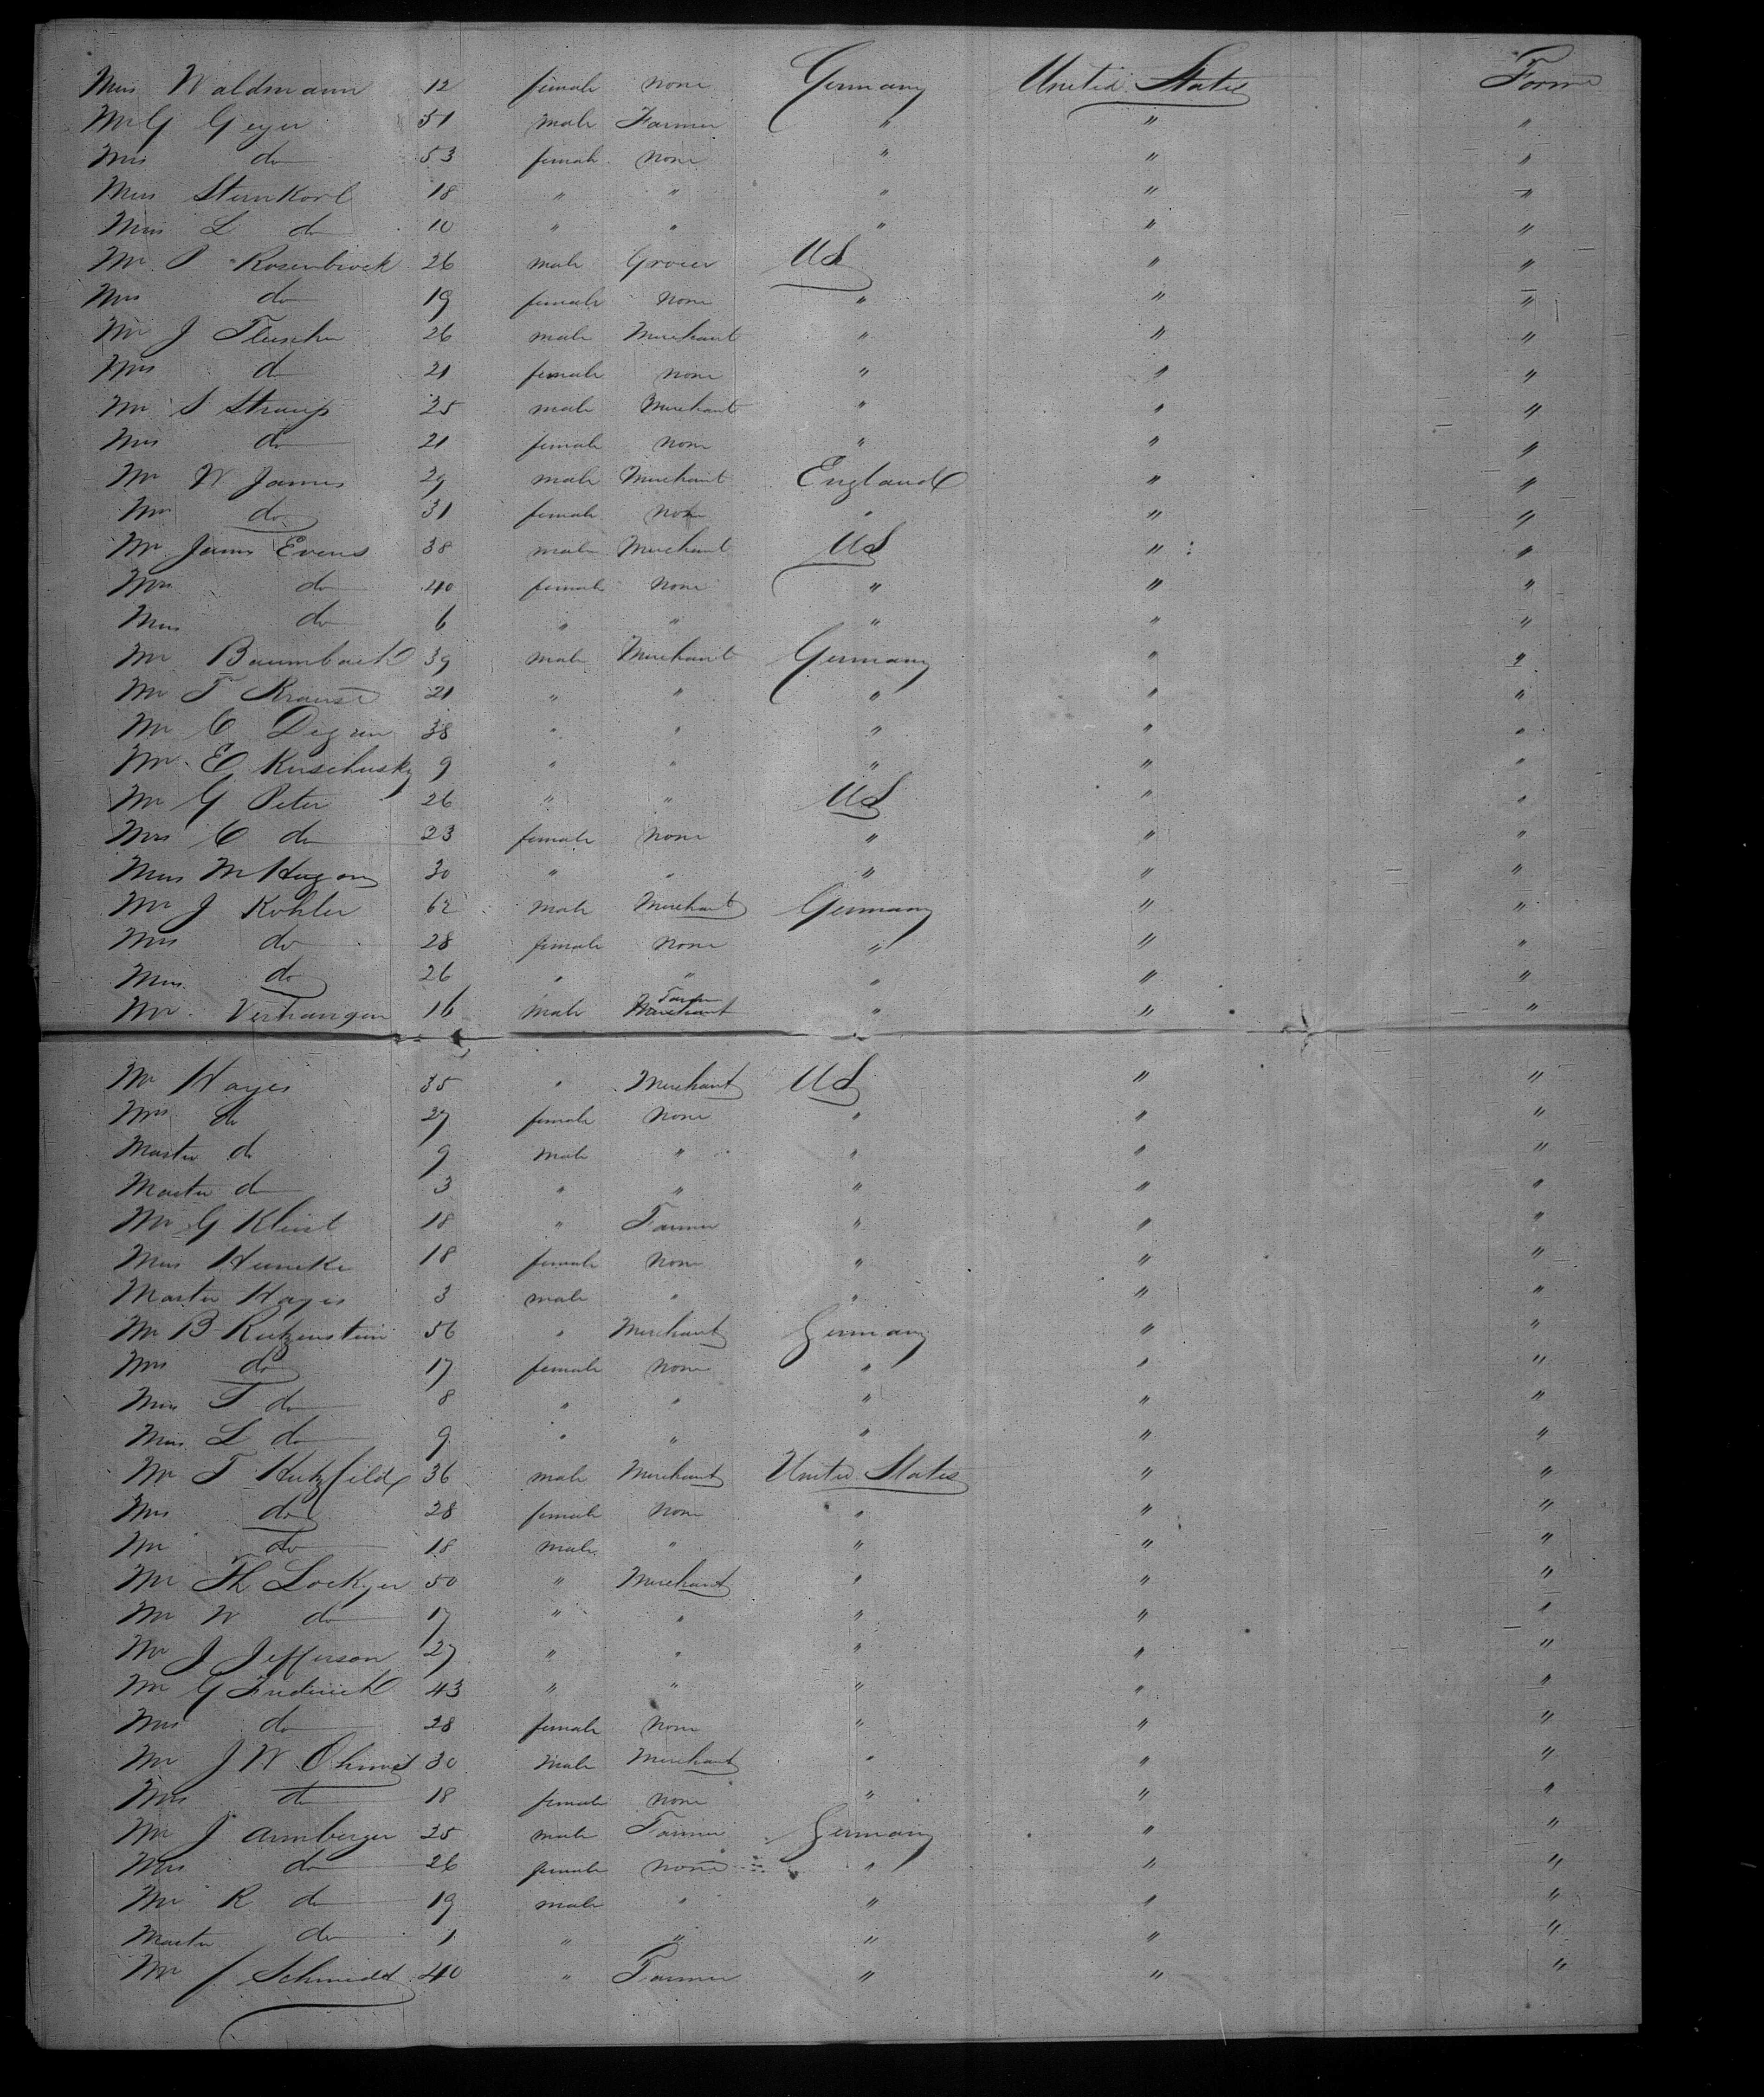 Miss Waldmann 12 female none Germany United States Forme
Mr G Geyer 51 male Farmer " " "
Mrs do 53 female none " " "
Miss Steinkorl 18 " " " " "
Miss L do 10 " " " " "
Mr P Rosenbrock 26 male Grocer US " "
Mrs do 19 female none " " "
Mr J Fleischer 26 male Merchant " " "
Mrs do 21 female none " " "
Mr S Straus 25 male Merchant " " "
Mrs do 21 female none " " "
Mr W James 29 male Merchant England " "
Mrs do 31 female none " " "
Mr James Evens 38 male Merchant US " "
Mrs do 40 female none " " "
Miss do 6 " " " " "
Mr Baumbach 39 male Merchant Germany " "
Mr F Krause 21 " " " " "
Mr C Degen 38 " " " " "
Mr E Kuschusky 9 " " " " "
Mr G Peter 26 " " US " "
Mrs C do 23 female none " " "
Miss M Hugon 30 " " " " "
Mr J Kohler 62 male Merchant Germany " "
Mrs do 28 female none " " "
Miss do 26 " " " " "
Mr Verhangen 16 male Merchant " " "
Mr Hayes 35 " Merchant US " "
Mrs do 27 female none " " "
Master do 9 male " " " "
Master do 3 " " " " "
Mr G Klint 18 " Farmer " " "
Miss Huneke 18 female none " " "
Master Hayes 3 male " " " "
Mr B Rutzenstein 56 " Merchant Germany " "
Mrs do 17 female none " " "
Miss T do 8 " " " " "
Miss L do 9 " " " " "
Mr T Hutzfild 36 male Merchant United States " "
Mrs do 28 female none " " "
Mr do 18 male " " " "
Mr Th Lockyer 50 " Merchant " " "
Mr W do 17 " " " " "
Mr J Jefferson 27 " " " " "
Mr G Frederick 43 " " " " "
Mrs do 28 female none " " "
Mr J W 30 male Merchant " " "
Mrs do 18 female none " " "
Mr J Armberger 25 male Farmer Germany " "
Mrs do 26 female none " " "
Mr R do 19 male " " " "
Master do 1 " " " " "
Mr J Schmidt 40 " Farmer " " "